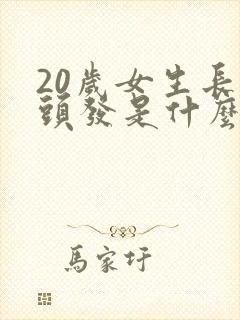 20歲女生長
頭發是什麼
馬家圩